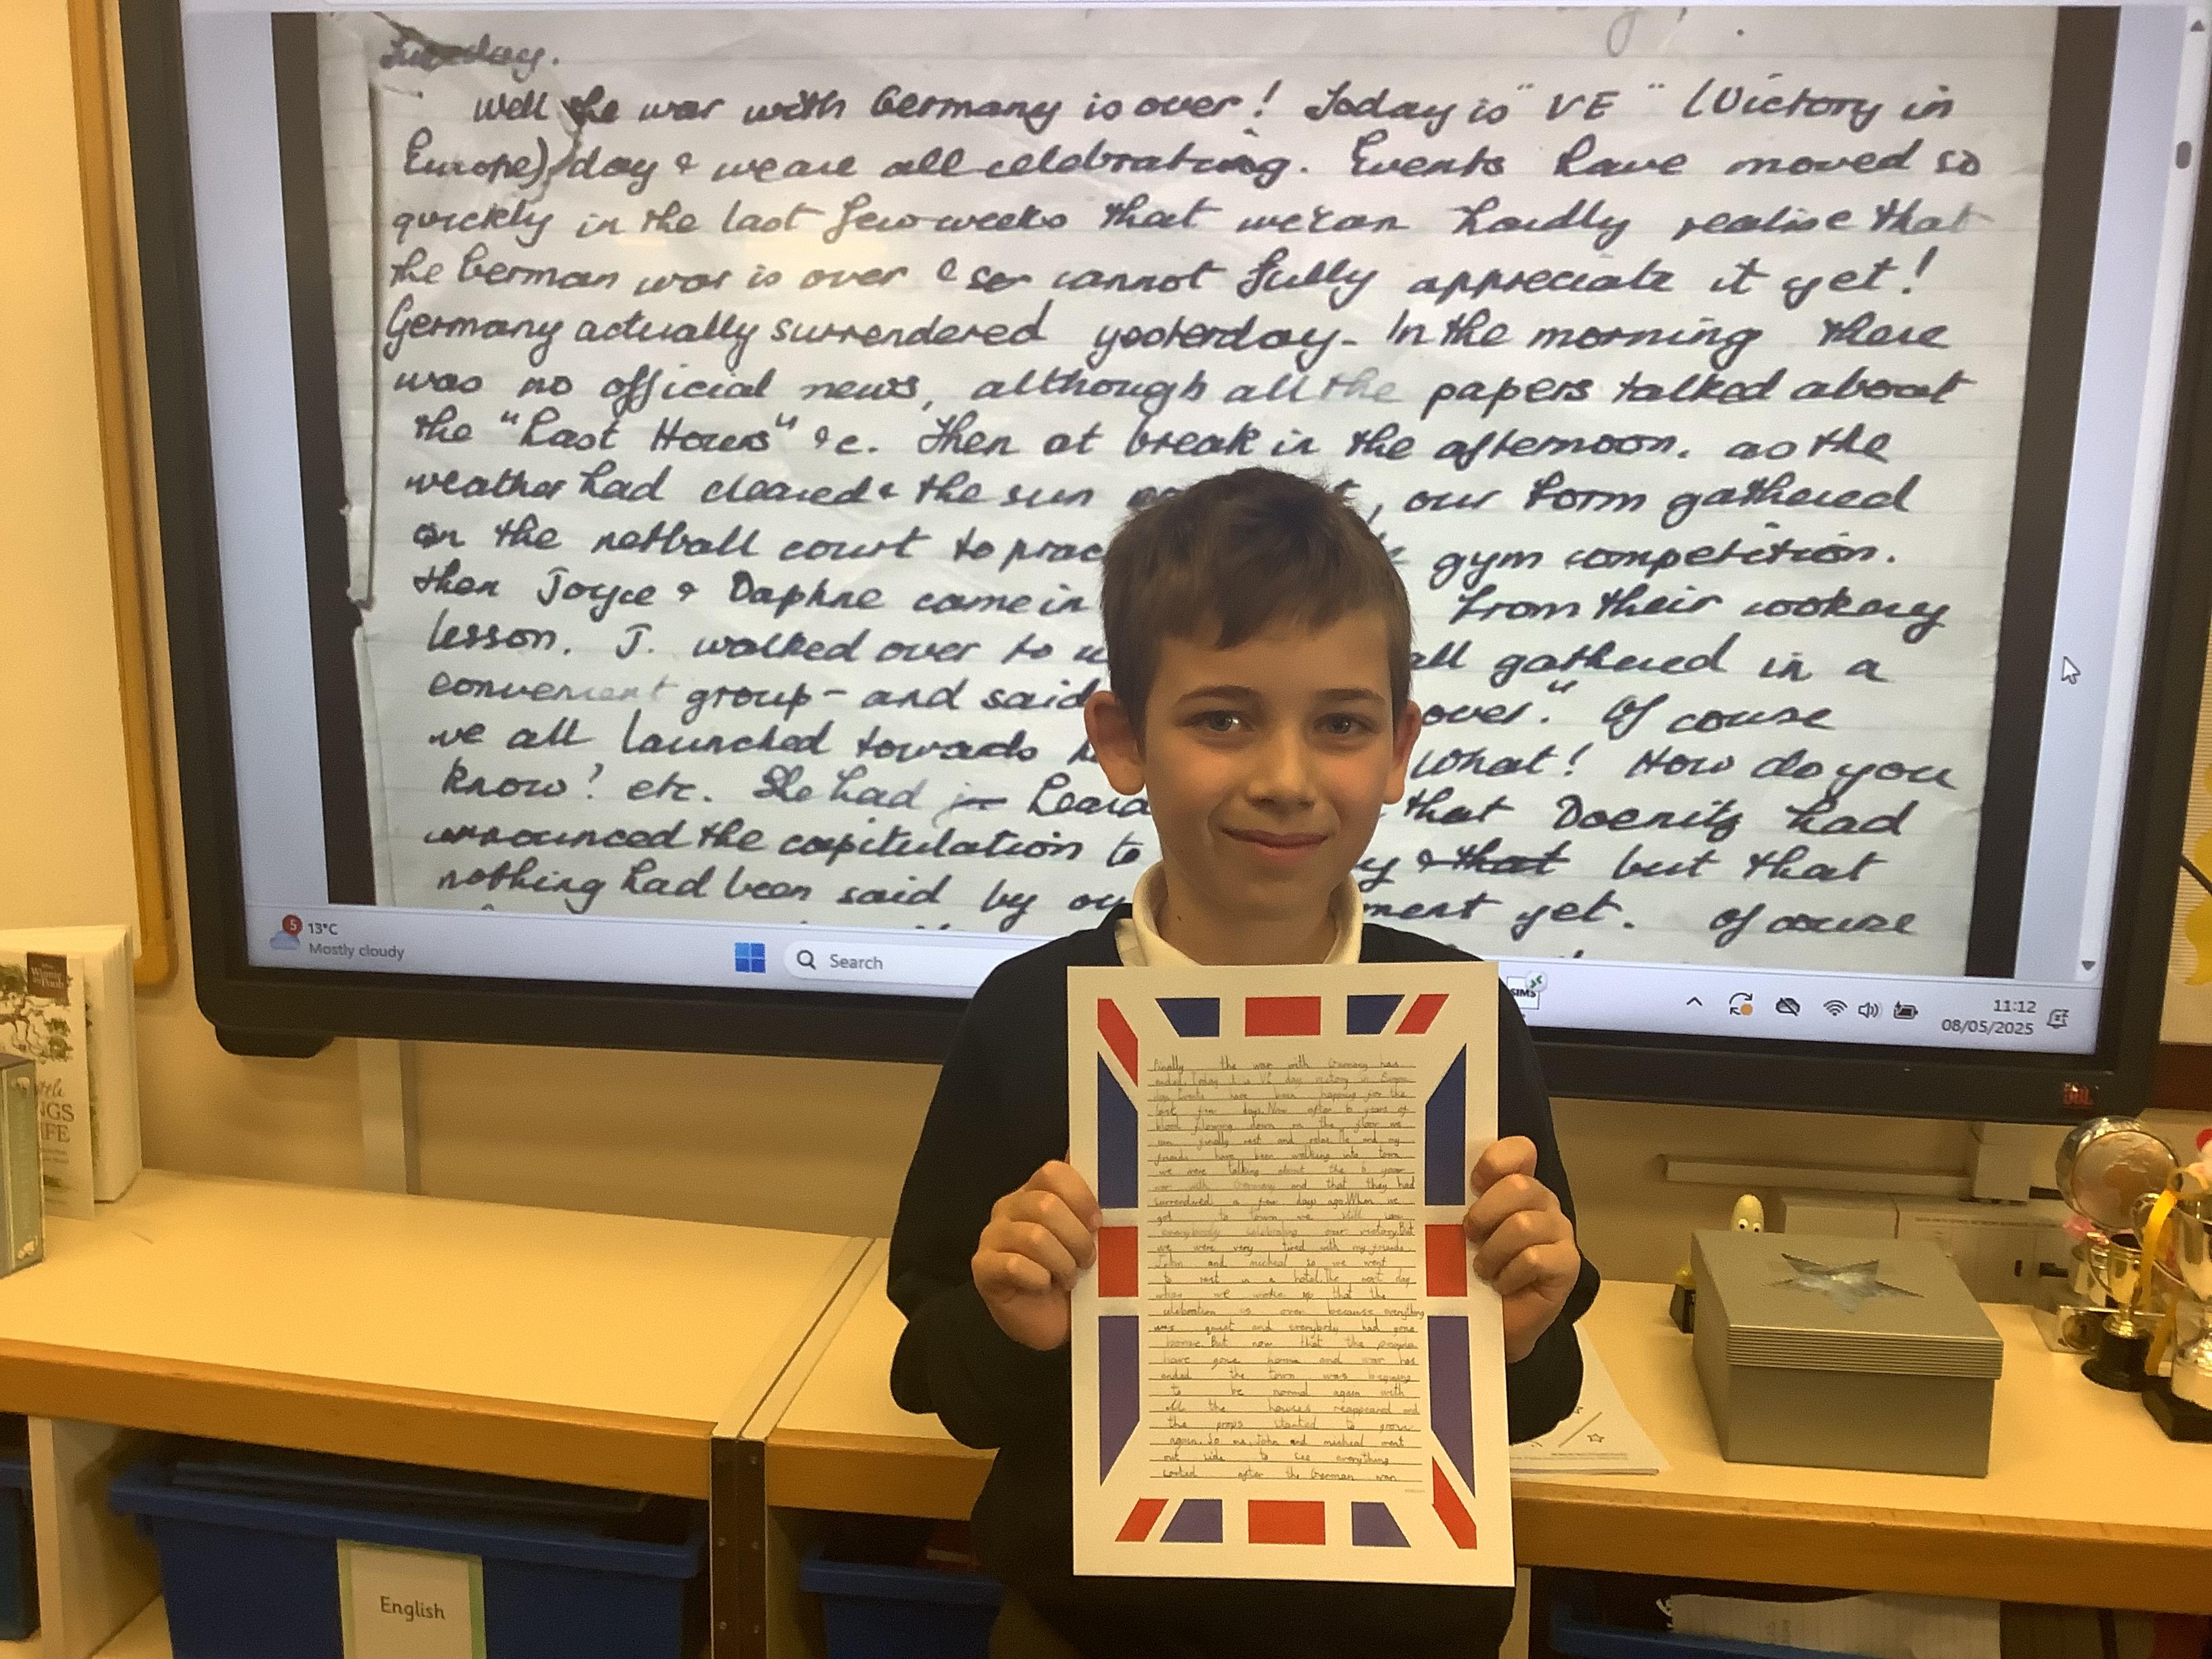 Tuesday.
Well the war with Germany is over! Today is "VE" (Victory in
Europe) day & we are all celebrating. Events have moved so
quickly in the last few weeks that we can hardly realise that
the German war is over & so cannot fully appreciate it yet!
Germany actually surrendered yesterday- In the morning there
was no official news, although all the papers talked about
the "Last Hours" &c. Then at break in the afternoon. as the
weather had cleared & the sun , our form gathered
on the netball court to prac gym competition.
then Joyce & Daphne came in from their cookery
lesson. J. walked over to u all gathered in a
convenient group- and said over." Of couse
we all launched towards h What! How do you
know? etc. She had heard that Doenitz had
announced the capitulation to y & that but that
nothing had been said by ou ment yet. Of couse
5
13°C
Mostly cloudy
Search
SIMS
11:12
08/05/2025
JBL
Winnie
the Pooh
NGS
IFE
English
Finally the war with Germany has
ended. Today is a VE day victory in Europe
day. Events have been happening for the
last few days. Now after 6 years of
blood flowing down on the floor we
can finally rest and relax. Me and my
friends have been walking into town
we were talking about the 6 year
war with Germany and that they had
surrendered a few days ago. When we
got to town we still saw
everybody celebrating our victory. But
we were very tired with my friends
John and micheal so we went
to rest in a hotel. The next day
when we woke up that the
celebration is over because everything
was quiet and everybody had gone
home. But now that the people
have gone home and war has
ended the town was begining
to be normal again with
all the houses reappeared and
the props started to grow
again. So me, John and micheal went
out side to see everything
sorted after the German war